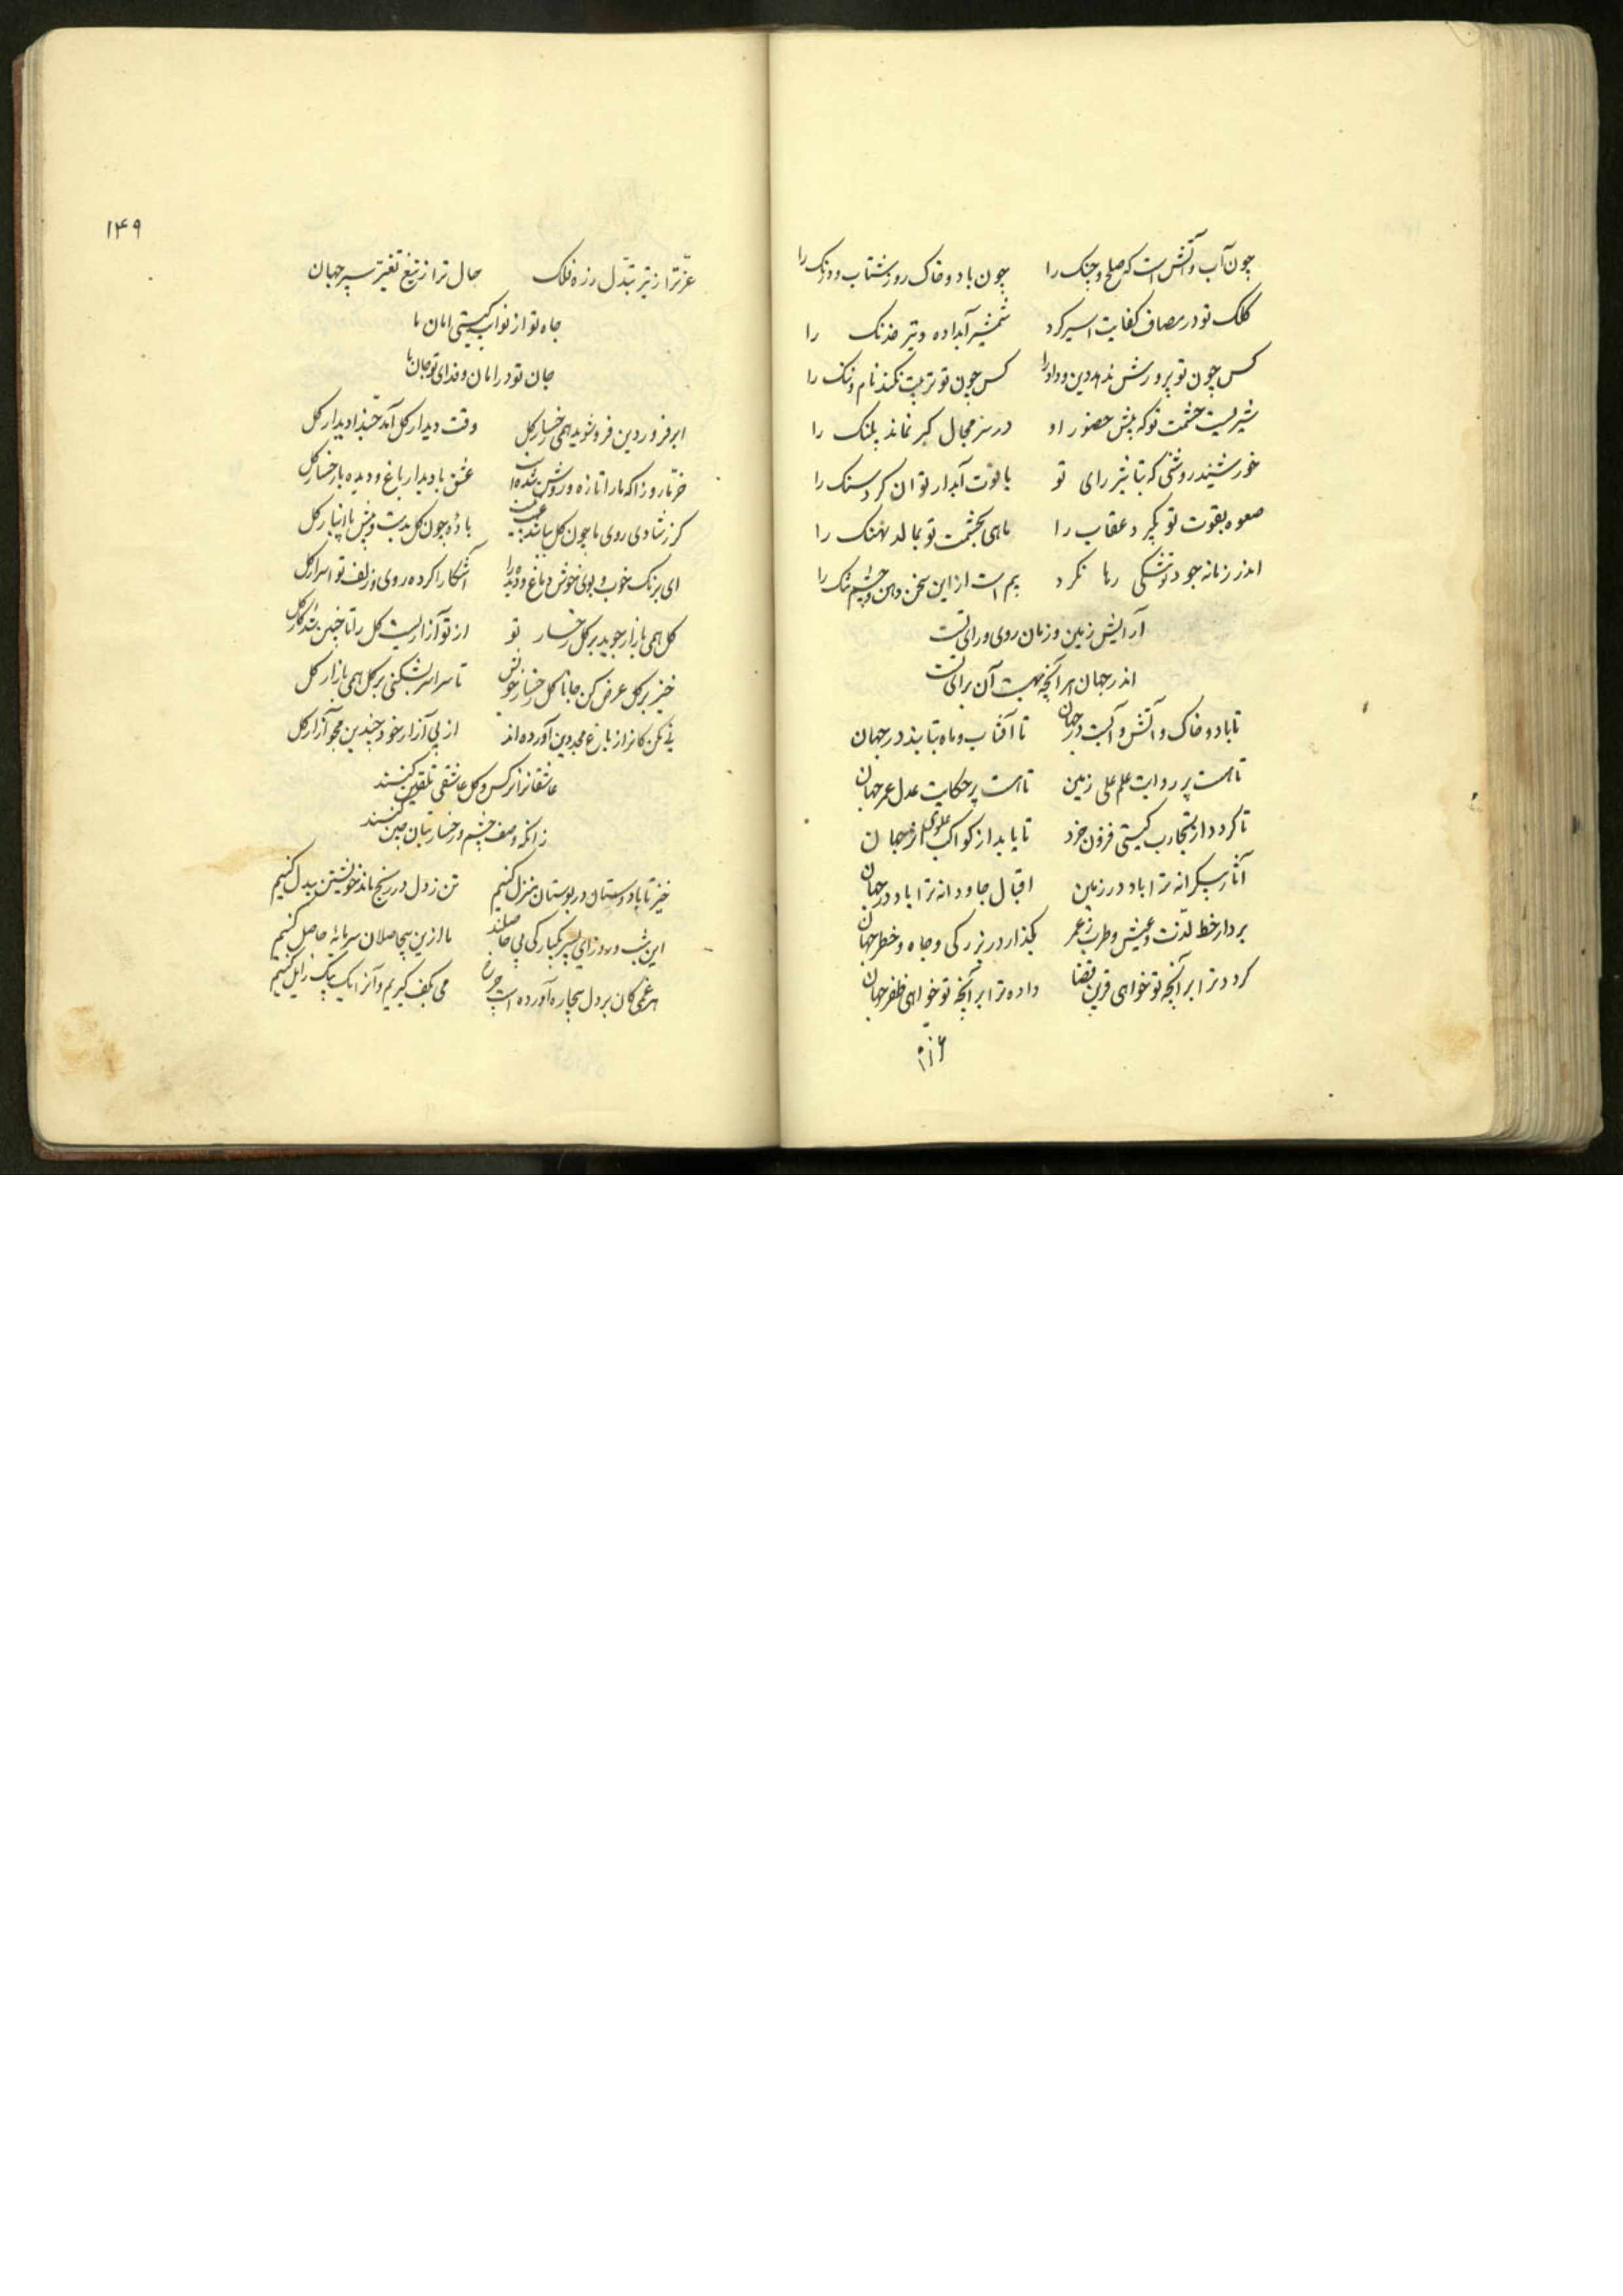 چون آب و آتش است که صلح و جنک را چون باد و خاک روز شتاب و درنک را
کلک تو در مصاف کفایت اسیر کرد شمشیر آبداده و تیر خدنک را
کس چون تو پرورش ندهد دین و داد را کس چون تو تربیت نکند نام و ننک را
شیریست حشمت تو که پیش حضور او در سر مجال کبر نماند پلنک را
خورشید روشنی که بتاثیر رای تو یاقوت آبدار توان کرد سنک را
صعوه بقوت تو بگیرد عقاب را ماهی بحشمت تو بمالد نهنک را
اندر زمانه جود تو تنگی رها نکرد بیم است از این سخن دهن و چشم تنک را
آرایش زمین و زمان روی و رای تست
اندر جهان هر آنچه بهست آن برای تست
تا باد و خاک و آتش و آبست در جهان تا آفتاب و ماه بتابند در جهان
تا هست پر روایت علم علی زمین تا هست پر حکایت عدل عمر جهان
تا کردد از تجارب کیتی فزون خرد تا یابد از کواکب علوی اثر جهان
آثار بیکرانه ترا باد در زمین اقبال جاودانه ترا باد در جهان
بردار خط لذت و عیش و طرب ز عمر بگذار در بزرکی و جاه و خطر جهان
کردد ترا بر آنچه تو خواهی قرین قضا داده ترا بر آنچه تو خواهی ظفر جهان
۱۴۹
عز ترا ز تیر تبدل زره فلک حال ترا ز تیغ تغیر سپر جهان
جاه تو از نوائب کیتی امان ما
جان تو در امان و فدای تو جان ما
ابر فروردین فرو شوید همی رخسار کل وقت دیدار کل آمد حبذا دیدار کل
خرما روزا که ما را تازه و روشن شده است عشق با دیدار باغ و دیده با رخسار کل
کر ز شادی روی ما چون کل بباشد عیب نیست باده چون کل بدست و پیش ما انبار کل
ای برنک خوب و بوی خوش دماغ و دیده را آشکارا کرده روی و زلف تو اسرار کل
کل همی بازار جوید بر کل رخسار تو از تو آزاریست کل را تا چنین شد کار کل
خیز بر کل عرض کن جانا کل رخسار خویش تا سراسر بشکنی بر کل همی بازار کل
نی مکن کانرا ز باغ مجد دین آورده اند از پی آزار خود چندین مجو آزار کل
عاشقانرا نرکس و کل عاشقی تلقین کنند
زانکه وصف چشم و رخسار بتان چین کنند
خیز تا با دوستان در بوستان منزل کنیم تن ز دل در رنج ماند خویشتن بیدل کنیم
این شب و روز ای پسر یکبارکی بی حاصلند ما ازین بیحاصلان سرمایه حاصل کنیم
هر غمی کان بر دل بیچاره آورده است چرخ می بکف کیریم و آنرا یک بیک زایل کنیم